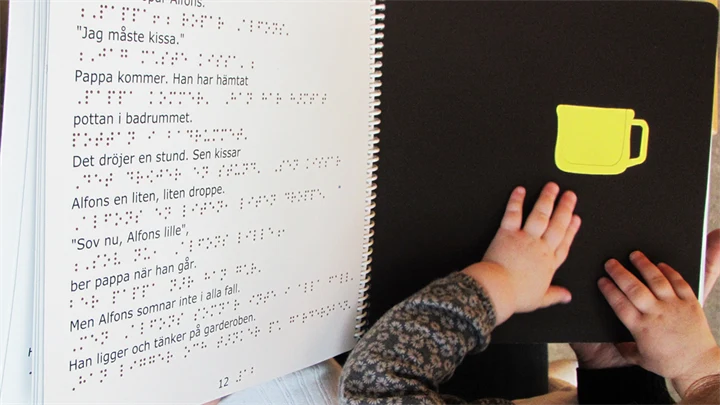 Alfons.
"Jag måste kissa."
Pappa kommer. Han har hämtat
pottan i badrummet.
Det dröjer en stund. Sen kissar
Alfons en liten, liten droppe.
"Sov nu, Alfons lille",
ber pappa när han går.
Men Alfons somnar inte i alla fall.
Han ligger och tänker på garderoben.
12